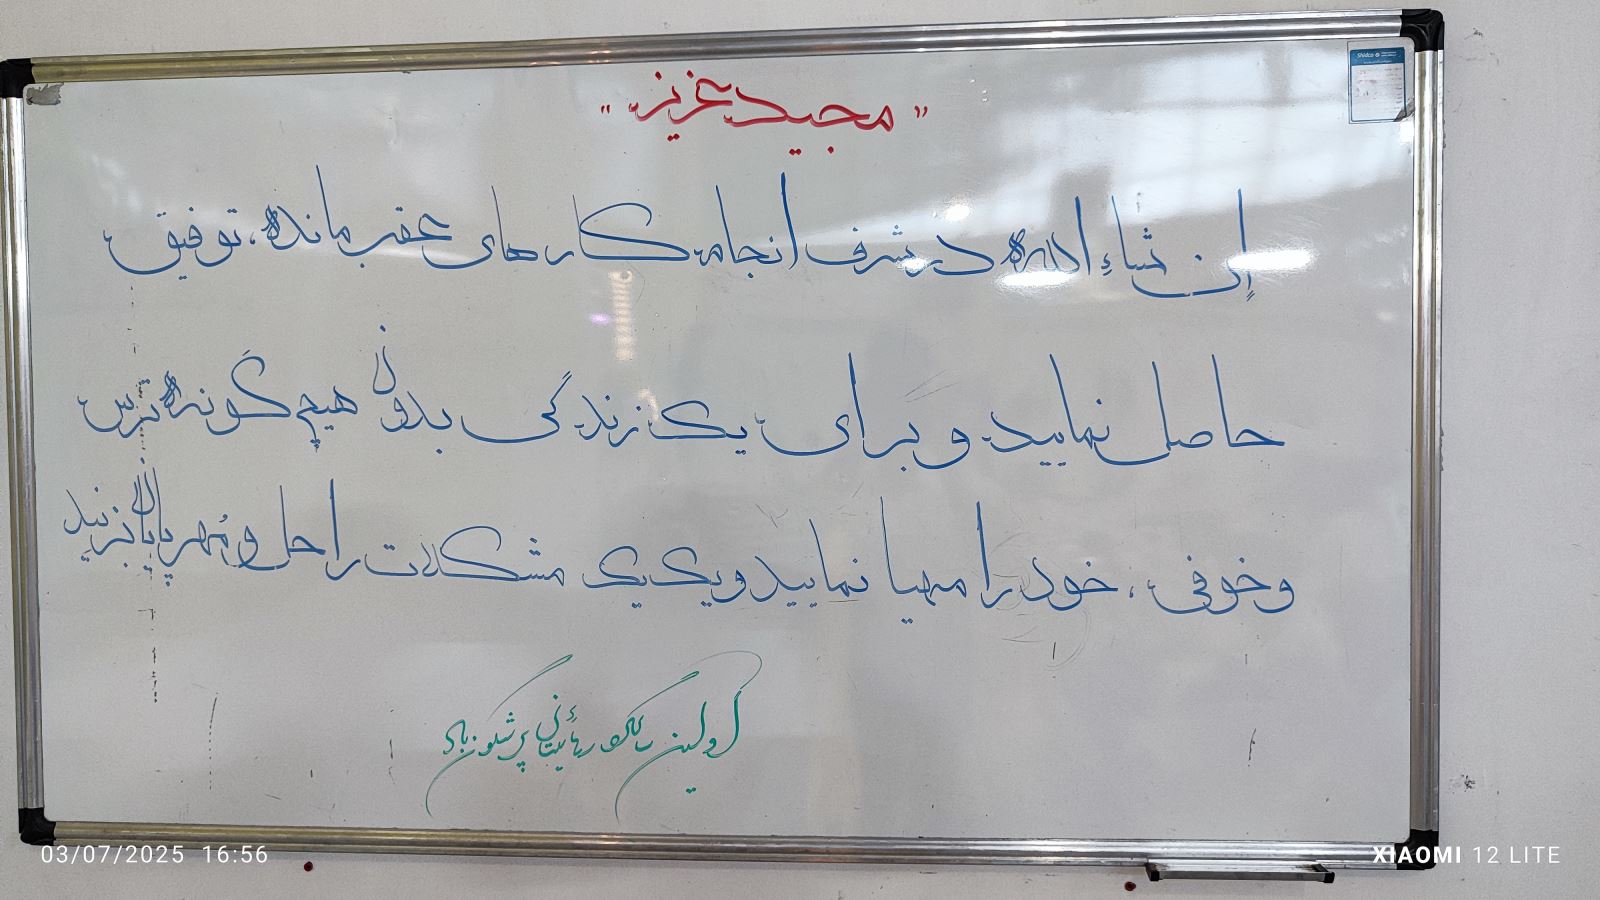 " مجید عزیز "
إن شاءِ الله در شرف انجام کارهای عقب مانده، توفیق
حاصل نمایید و برای یک زندگی بدون هیچ گونه ترس
و خوفی، خود را مهیا نمایید و یک یک مشکلات را حل و مُهر پایان بزنید
اولین سالگرد رهائیتان پرشگون باد
Shidco
03/07/2025 16:56
XIAOMI 12 LITE